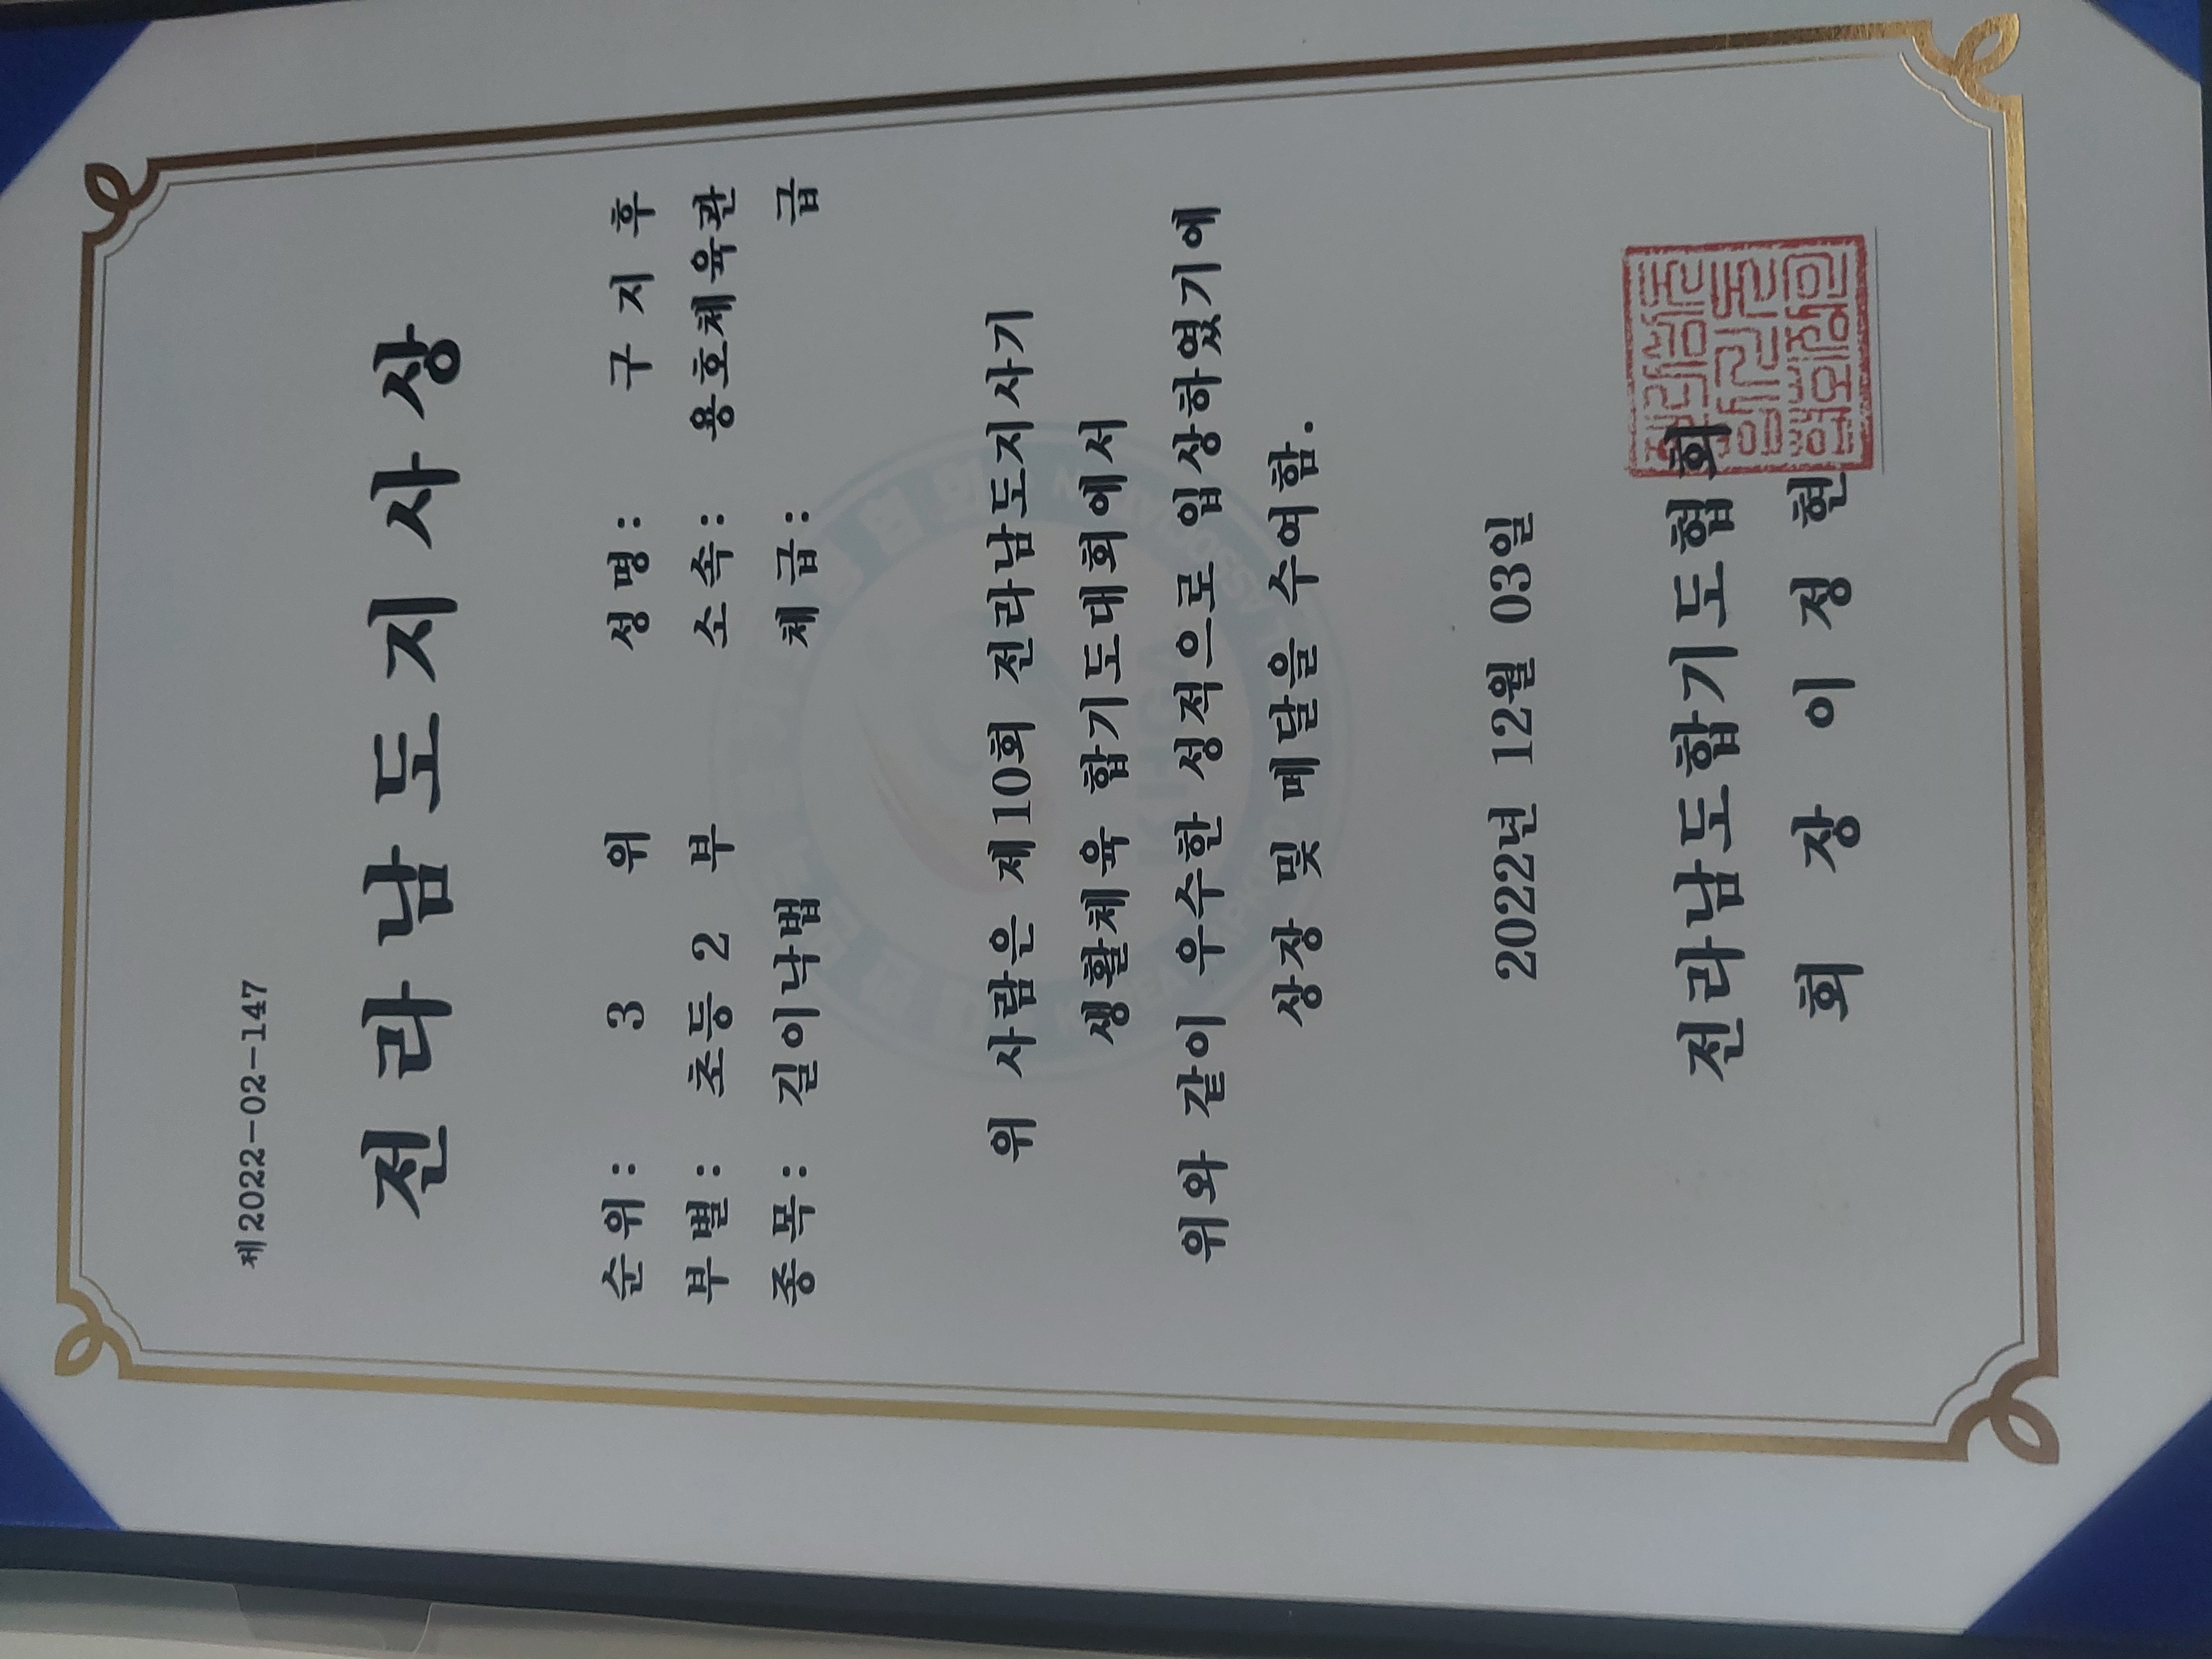 제2022-02-147
전라남도지사상
순위: 3 위 성명: 구 지 후
부별: 초등 2 부 소속: 용호체육관
종목: 길이낙법 체급: 급
위 사람은 제10회 전라남도지사기
생활체육 합기도대회에서
위와 같이 우수한 성적으로 입상하였기에
상장 및 메달을 수여함.
2022년 12월 03일
전라남도합기도협회
회 장 이 정 현